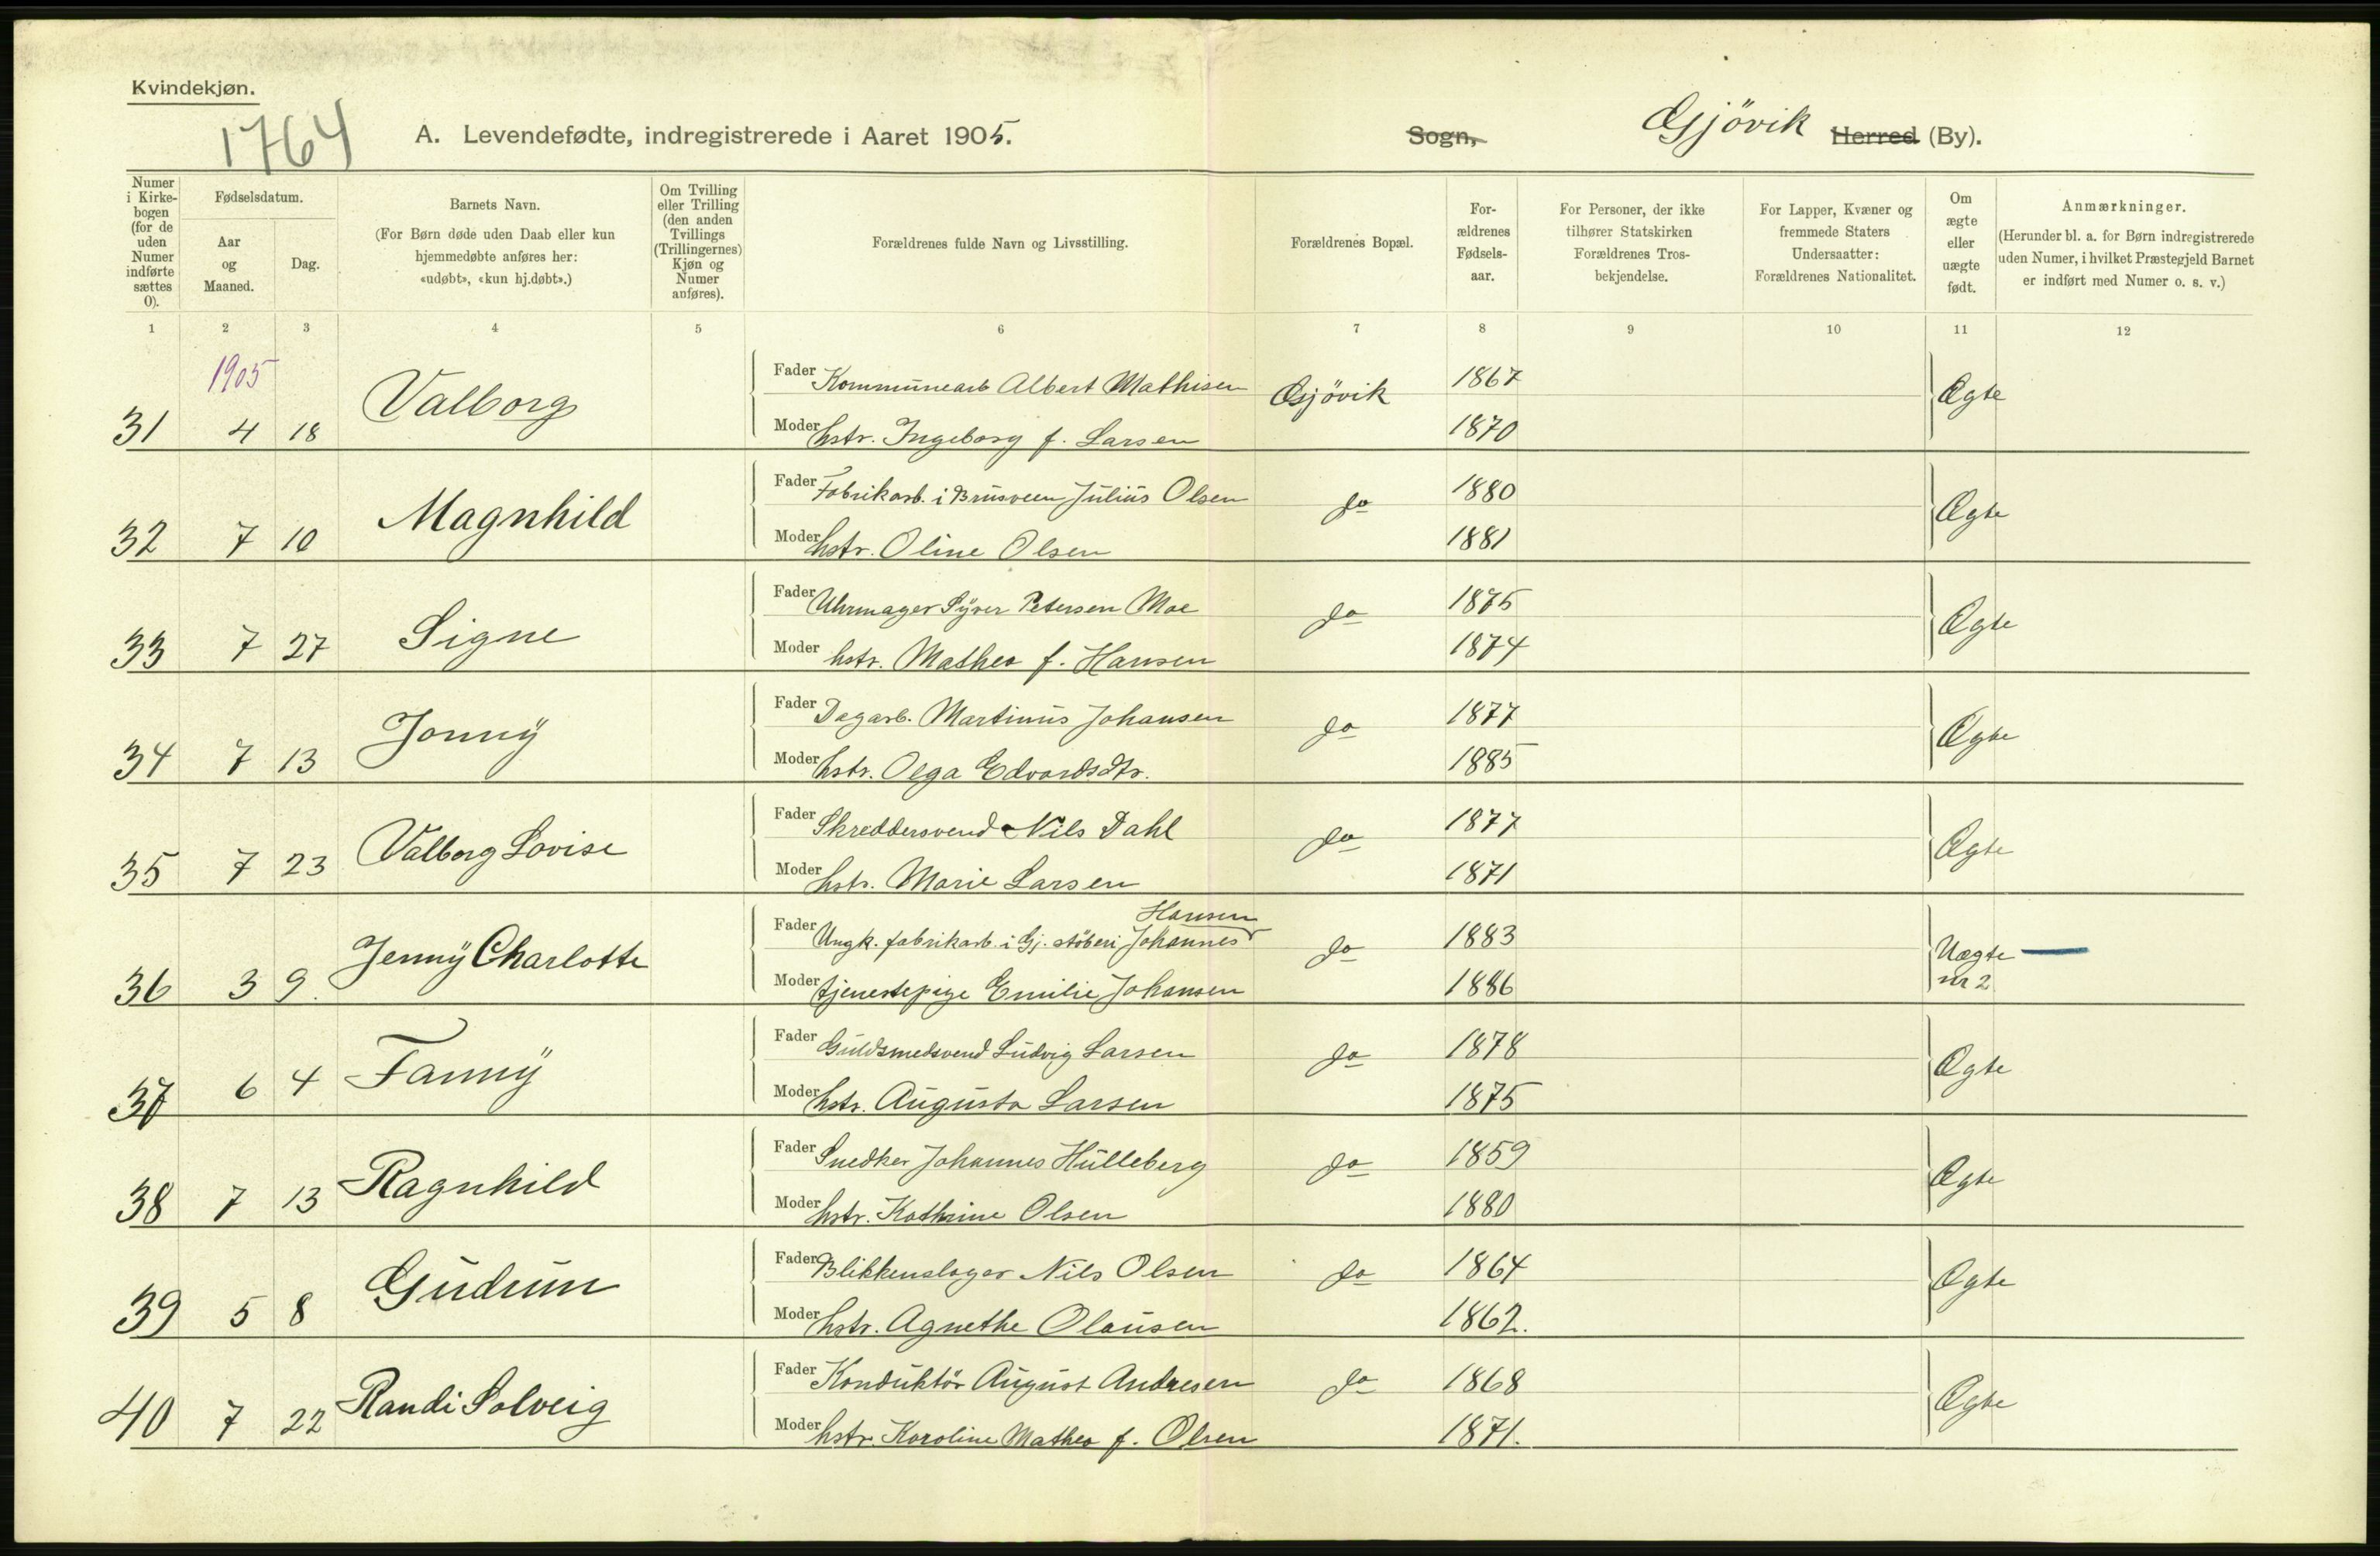 Kvindekjøn.
1764
A. Levendefødte, indregistrerede i Aaret 1905. Sogn, Gjövik Herred (By).
Numer i Kirkebogen (for de uden Numer indførte sættes 0).
Fødselsdatum.
Aar og Maaned.
Dag.
Barnets Navn.
(For Børn døde uden Daab eller kun hjemmedøbte anføres her: «udøbt», «kun hj.døbt».)
Om Tvilling eller Trilling (den anden Tvillings (Trillingernes) Kjøn og Numer anføres).
Forældrenes fulde Navn og Livsstilling.
Forældrenes Bopæl.
For-ældrenes Fødsels-aar.
For Personer, der ikke tilhører Statskirken Forældrenes Tros-bekjendelse.
For Lapper, Kvæner og fremmede Staters Undersaatter: Forældrenes Nationalitet.
Om ægte eller uægte født.
Anmærkninger.
(Herunder bl. a. for Børn indregistrerede uden Numer, i hvilket Præstegjeld Barnet er indført med Numer o. s. v.)
1 2 3 4 5 6 7 8 9 10 11 12
1905
31 4 18 Valborg Fader Kommunearb Albert Mathisen Gjövik 1867 Ægte
Moder hstr. Ingeborg f. Larsen 1870
32 7 10 Magnhild Fader Fabrikarb. i Brusveen Julius Olsen do 1880 Ægte
Moder hstr. Oline Olsen 1881
33 7 27 Signe Fader Uhrmager Syver Petersen Moe do 1875 Ægte
Moder hstr. Mathea f. Hansen 1874
34 7 13 Jonny Fader Dagarb. Martinus Johansen do 1877 Ægte
Moder hstr. Olga Edvardsdtr. 1885
35 7 23 Valborg Lovise Fader Skreddersvend Nils Dahl do 1877 Ægte
Moder hstr. Marie Larsen 1871
36 3 9. Jenny Charlotte Fader Ungk. fabrikarb. i Gj. støberi Johannes Hansen do 1883 Uægte
Moder tjenestepige Emilie Johansen 1886 nr 2
37 6 4 Fanny Fader Guldsmedsvend Ludvig Larsen do 1878 Ægte
Moder hstr. Augusta Larsen 1875
38 7 13 Ragnhild Fader Snedker Johannes Hulleberg do 1859 Ægte
Moder hstr. Kathrine Olsen 1880
39 5 8 Gudrun Fader Blikkenslager Nils Olsen do 1864 Ægte
Moder hstr. Agnethe Olausen 1862.
40 7 22 Randi Solveig Fader Konduktör August Andresen do 1868 Ægte
Moder hstr. Karoline Mathea f. Olsen 1871.